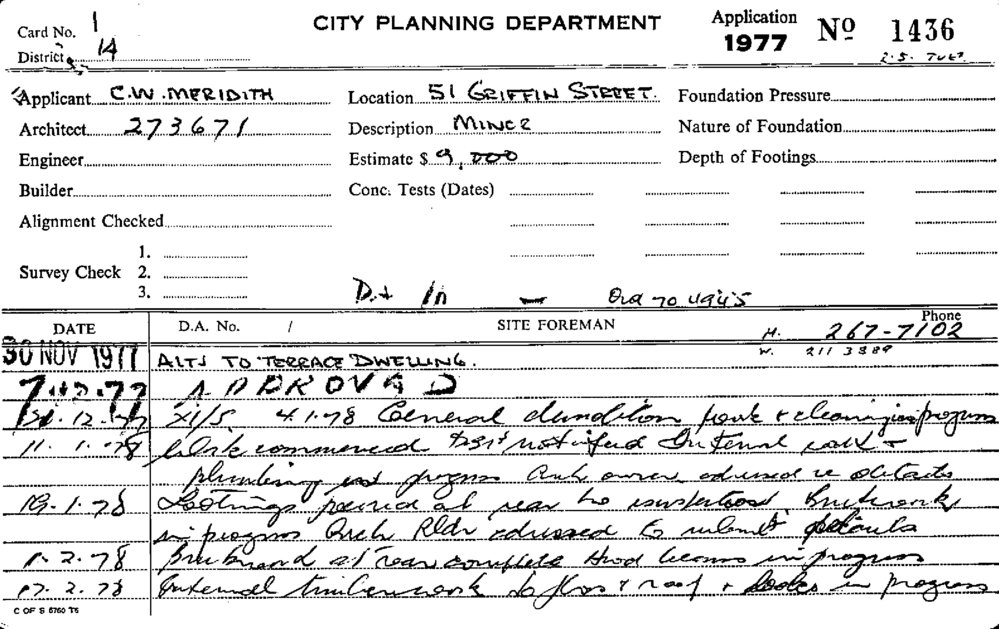 Card No. 1
District 14
CITY PLANNING DEPARTMENT
Application 1977 Nº 1436
Applicant C.W. MERIDITH
Location 51 GRIFFIN STREET.
Foundation Pressure
Architect 273671
Description MINOR
Nature of Foundation
Engineer
Estimate $ 9,000
Depth of Footings
Builder
Conc. Tests (Dates)
Alignment Checked
Survey Check 1.
2.
3.
In -
DATE D.A. No. / SITE FOREMAN Phone
H. 267-7102
W. 211 3389
30 NOV 1977 ALTS TO TERRACE DWELLING.
7.12.77 APPROVED
.12.77 4.1.78 General demolition work & cleaning in progress
11.1.78 Work commenced not notified Internal &
plumbing in progress owner advised re details
19.1.78 Footings poured at rear no Brickwork
in progress Arch Bldr advised to submit details
1.2.78 at rear complete beams in progress
17.2.78 Internal timberwork to floor & roof & in progress
C OF S 5760 TS